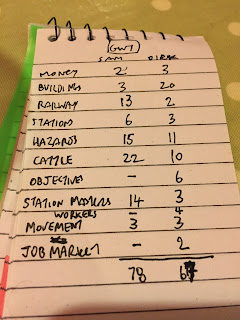 GWT
SAM DIRK
MONEY 2 3
BUILDINGS 3 20
RAILWAY 13 2
STATIONS 6 3
HAZARDS 15 11
CATTLE 22 10
OBJECTIVES - 6
STATION MASTERS 14 3
WORKERS - 4
MOVEMENT 3 3
JOB MARKET - 2
78 67